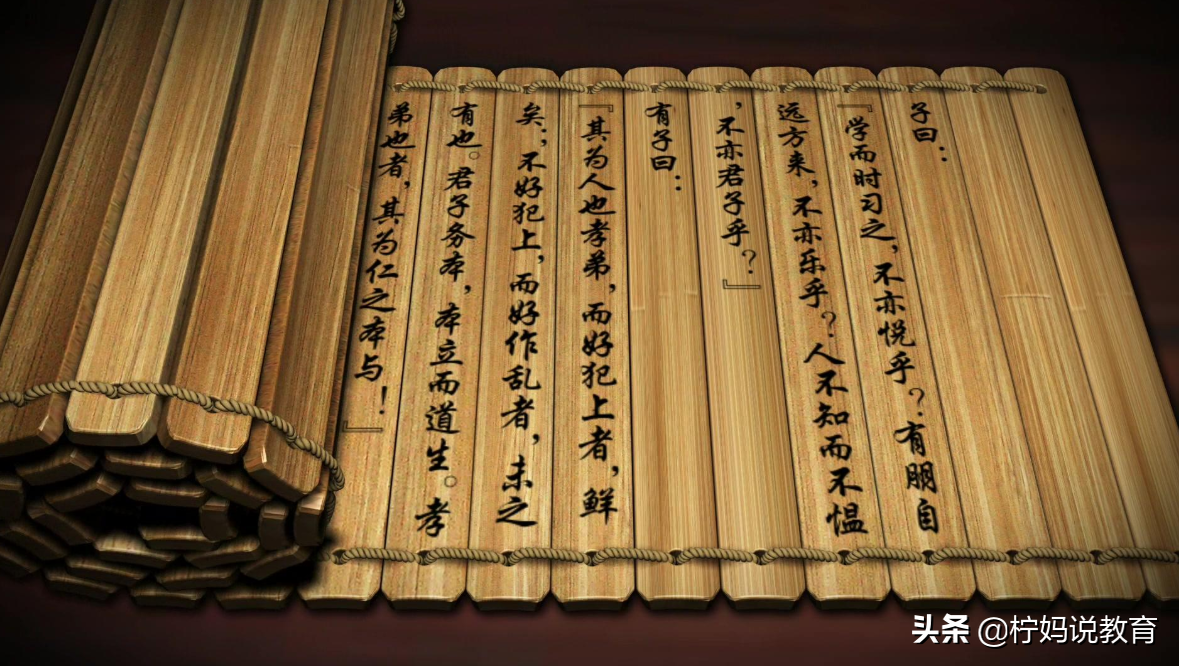 子曰：
『学而时习之，不亦悦乎？有朋自
远方来，不亦乐乎？人不知而不愠
，不亦君子乎？』
有子曰：
『其为人也孝弟，而好犯上者，鲜
矣；不好犯上，而好作乱者，未之
有也。君子务本，本立而道生。孝
弟也者，其为仁之本与！』
头条 @柠妈说教育